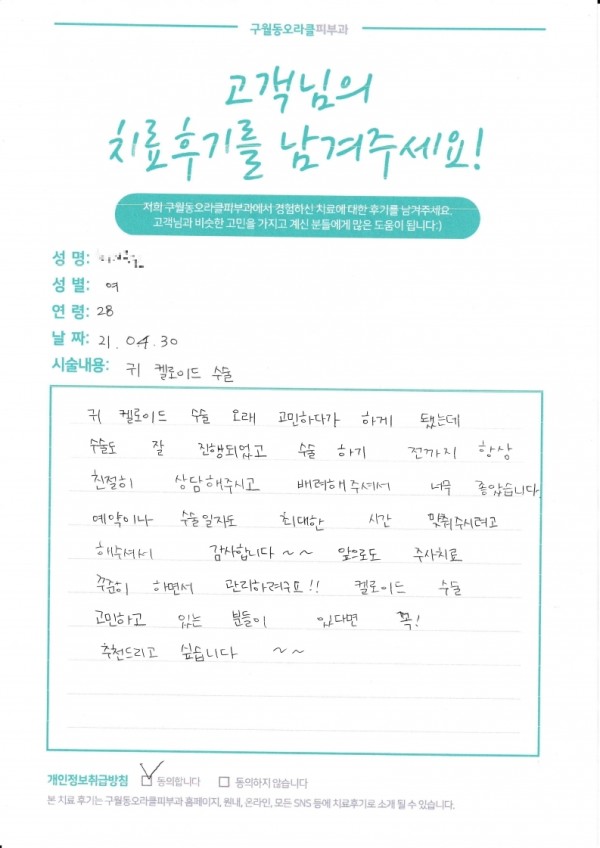 구월동오라클피부과
고객님의
치료후기를 남겨주세요!
저희 구월동오라클피부과에서 경험하신 치료에 대한 후기를 남겨주세요.
고객님과 비슷한 고민을 가지고 계신 분들에게 많은 도움이 됩니다:)
성 명:
성 별: 여
연 령: 28
날 짜: 21. 04. 30
시술내용: 귀 켈로이드 수술
귀 켈로이드 수술 오래 고민하다가 하게 됐는데
수술도 잘 진행되었고 수술 하기 전까지 항상
친절히 상담해주시고 배려해주셔서 너무 좋았습니다.
예약이나 수술일자도 최대한 시간 맞춰주시려고
해주셔서 감사합니다~~ 앞으로도 주사치료
꾸준히 하면서 관리하려구요!! 켈로이드 수술
고민하고 있는 분들이 있다면 꼭!
추천드리고 싶습니다 ~~
개인정보취급방침 동의합니다 동의하지 않습니다
본 치료 후기는 구월동오라클피부과 홈페이지, 원내, 온라인, 모든 SNS 등에 치료후기로 소개 될 수 있습니다.